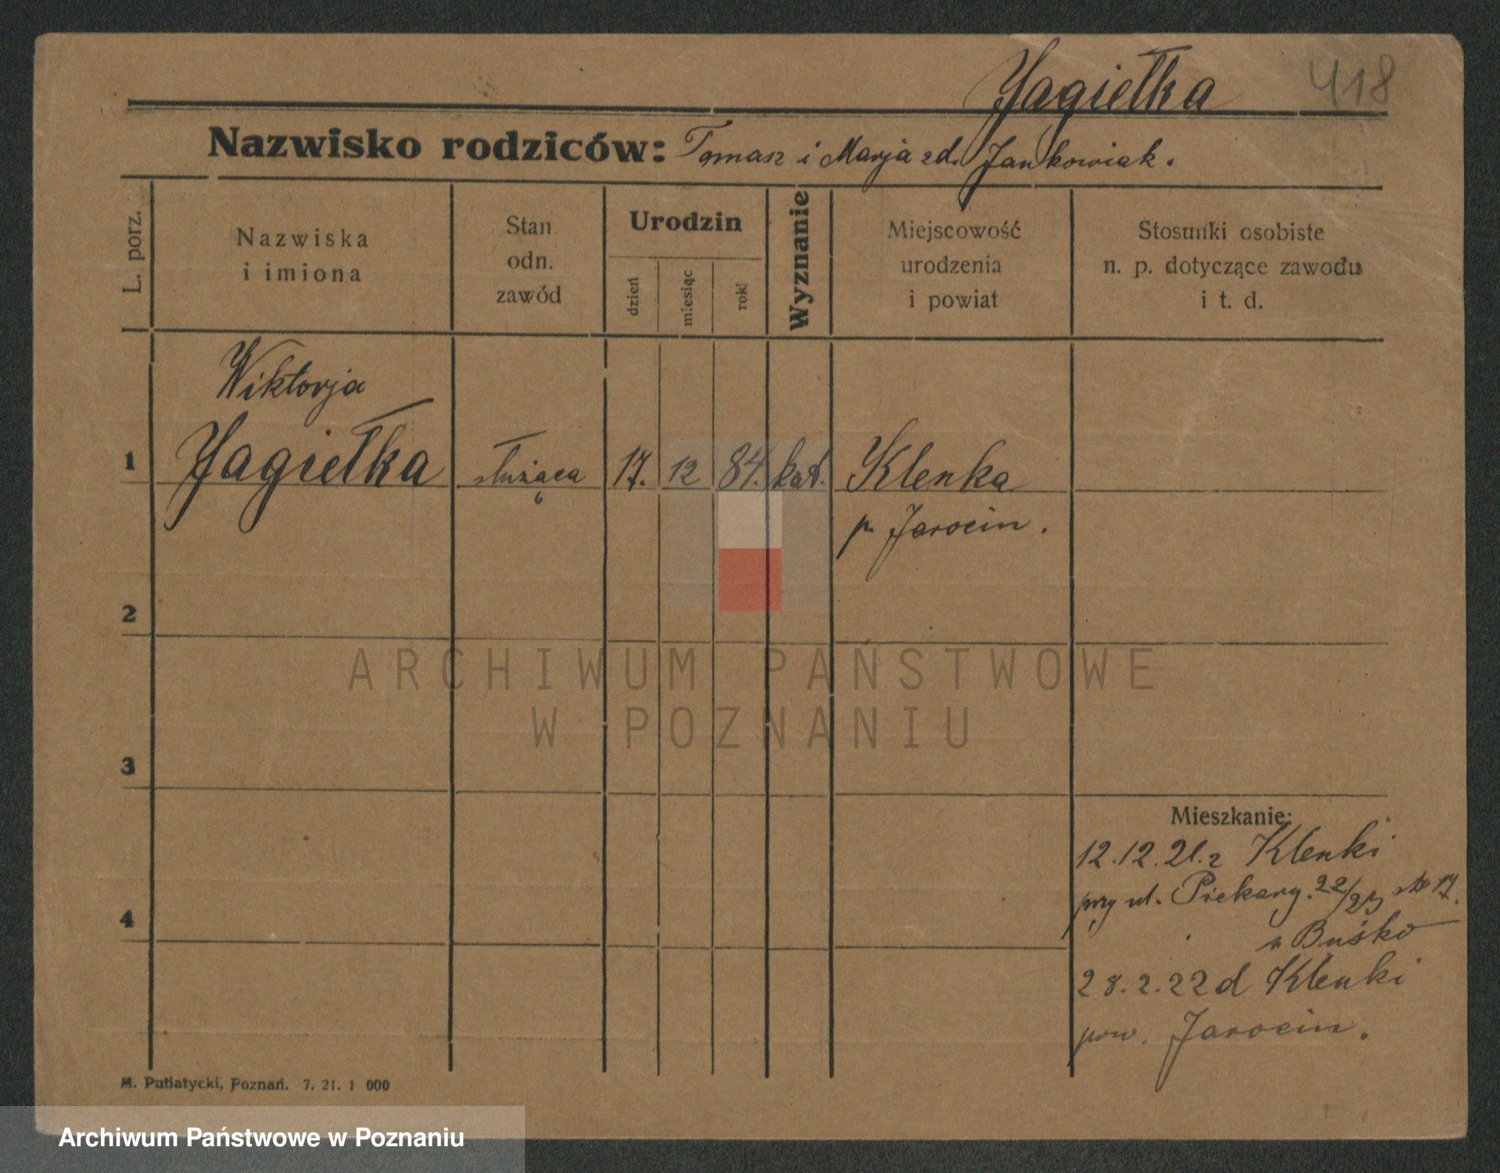 Jagiełka 418
Nazwisko rodziców: Tomasz i Marja zd. Jankowiak.
L. porz.
Nazwiska
i imiona
Stan
odn.
zawód
Urodzin
dzień
miesiąc
rok
Wyznanie
Miejscowość
urodzenia
i powiat
Stosunki osobiste
n. p. dotyczące zawodu
i t. d.
Wiktorja
1 Jagiełka służąca 17. 12 84. kat. Klenka
p. Jarocin.
2
3
4
Mieszkanie:
12.12.21. z Klenki
przy ul. Piekary. 22/23 17.
Buśko
28.2.22 d Klenki
pow. Jarocin.
M. Putiatycki, Poznań. 7. 21. 1 000
ARCHIWUM PAŃSTWOWE
W POZNANIU
Archiwum Państwowe w Poznaniu